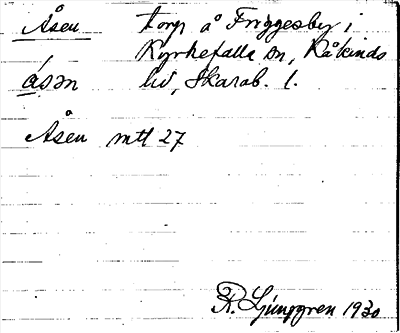 Åsen torp å Friggesby i
Kyrkefalla sn, Kåkinds
åsən hd, Skarab. l.
Åsen mtl 27
R. Ljunggren 1930